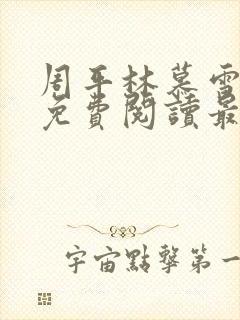 周平林慕雪
免費閱讀最
宇宙點擊第一